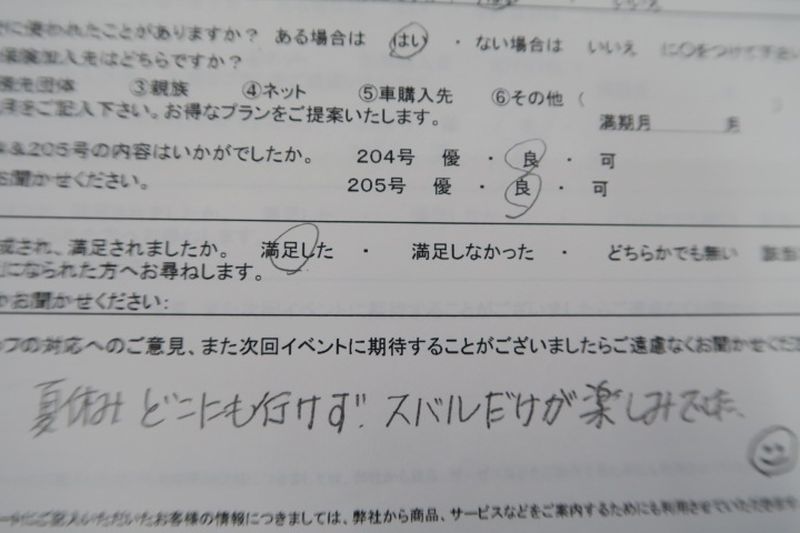 に使われたことがありますか? ある場合は はい ・ ない場合は いいえ に○をつけて下さい
保険加入先はどちらですか?
団体 ③親族 ④ネット ⑤車購入先 ⑥その他 (
をご記入下さい。お得なプランをご提案いたします。 満期月 月
&205号の内容はいかがでしたか。 204号 優 ・ 良 ・ 可
お聞かせください。 205号 優 ・ 良 ・ 可
成され、満足されましたか。 満足した ・ 満足しなかった ・ どちらかでも無い
になられた方へお尋ねします。
かお聞かせください:
ッフの対応へのご意見、また次回イベントに期待することがございましたらご遠慮なくお聞かせくだ
夏休みどこにも行けず、スバルだけが楽しみでした、
ートにご記入いただいたお客様の情報につきましては、弊社から商品、サービスなどをご案内するためにも利用させていただき